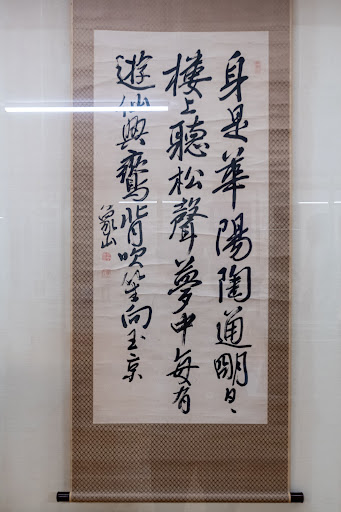 身是華陽陶通明日〻
楼上聽松聲夢中每有
遊仙興鸞背吹笙向玉京
象山